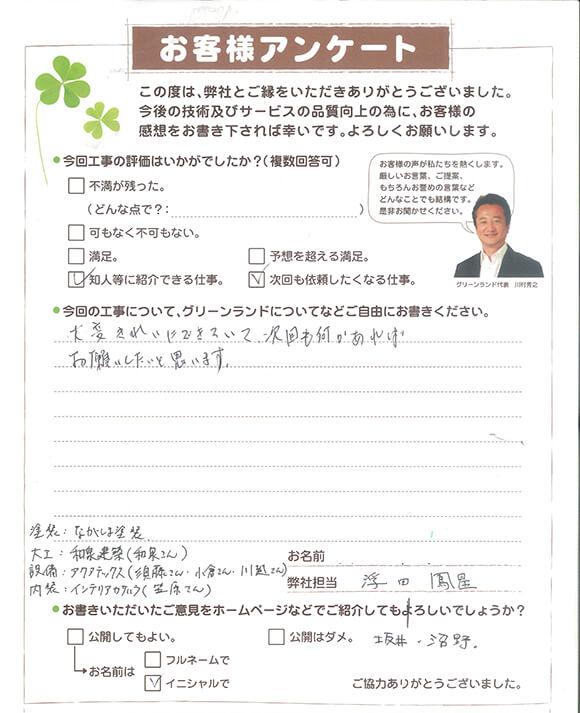 お客様アンケート
この度は、弊社とご縁をいただきありがとうございました。
今後の技術及びサービスの品質向上の為に、お客様の
感想をお書き下されば幸いです。よろしくお願いします。
●今回工事の評価はいかがでしたか?(複数回答可)
不満が残った。
(どんな点で?: )
可もなく不可もない。
満足。
予想を超える満足。
知人等に紹介できる仕事。
次回も依頼したくなる仕事。
お客様の声が私たちを熱くします。
厳しいお言葉、ご提案、
もちろんお誉めの言葉など
どんなことでも結構です。
是非お聞かせください。
グリーンランド代表 川村秀之
●今回の工事について、グリーンランドについてなどご自由にお書きください。
大変きれいにできていて、次回も何かあれば
お願いしたいと思います。
塗装:ながしま塗装
大工:和泉建築(和泉さん)
設備:アクアテックス(須藤さん・小倉さん・川越さん)
内装:インテリアカサハラ(笠原さん)
お名前
弊社担当 浮田 鳳星
坂井・沼野
●お書きいただいたご意見をホームページなどでご紹介してもよろしいでしょうか?
公開してもよい。
公開はダメ。
お名前は
フルネームで
イニシャルで
ご協力ありがとうございました。